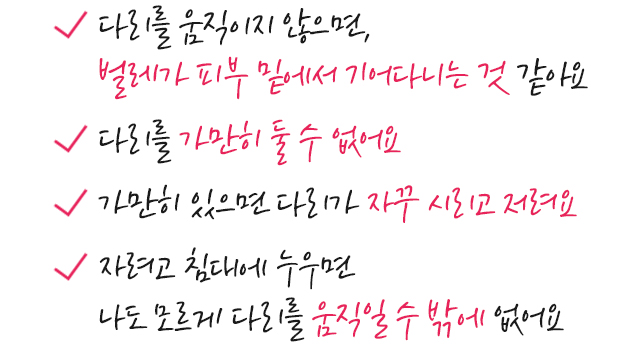 다리를 움직이지 않으면,
벌레가 피부 밑에서 기어다니는 것 같아요
다리를 가만히 둘 수 없어요
가만히 있으면 다리가 자꾸 시리고 저려요
자려고 침대에 누우면
나도 모르게 다리를 움직일 수 밖에 없어요